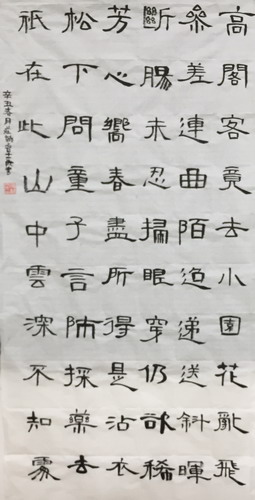 高閣客竟去小園花亂飛
參差連曲陌迢遞送斜暉
斷腸未忍掃眼穿仍欲稀
芳心嚮春盡所得是沾衣
松下問童子言師採藥去
祇在此山中雲深不知處
辛丑春月